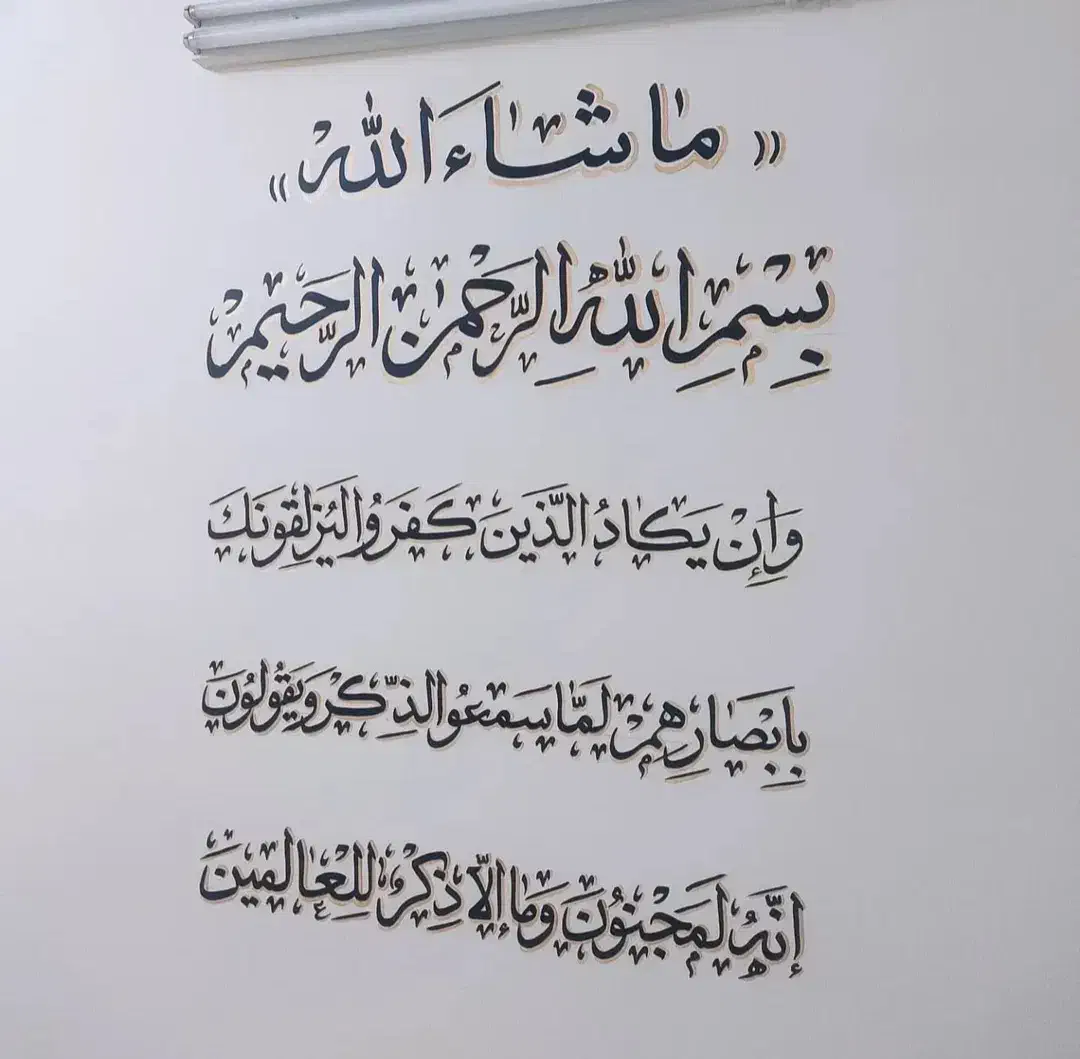 « مَا شَاءَ اللهُ »
بِسْمِ اللهِ الرَّحْمٰنِ الرَّحِيمِ
وَإِنْ يَكَادُ الَّذِينَ كَفَرُوا لَيُزْلِقُونَكَ
بِأَبْصَارِهِمْ لَمَّا سَمِعُوا الذِّكْرَ وَيَقُولُونَ
إِنَّهُ لَمَجْنُونٌ وَمَا إِلَّا ذِكْرٌ لِلْعَالَمِينَ